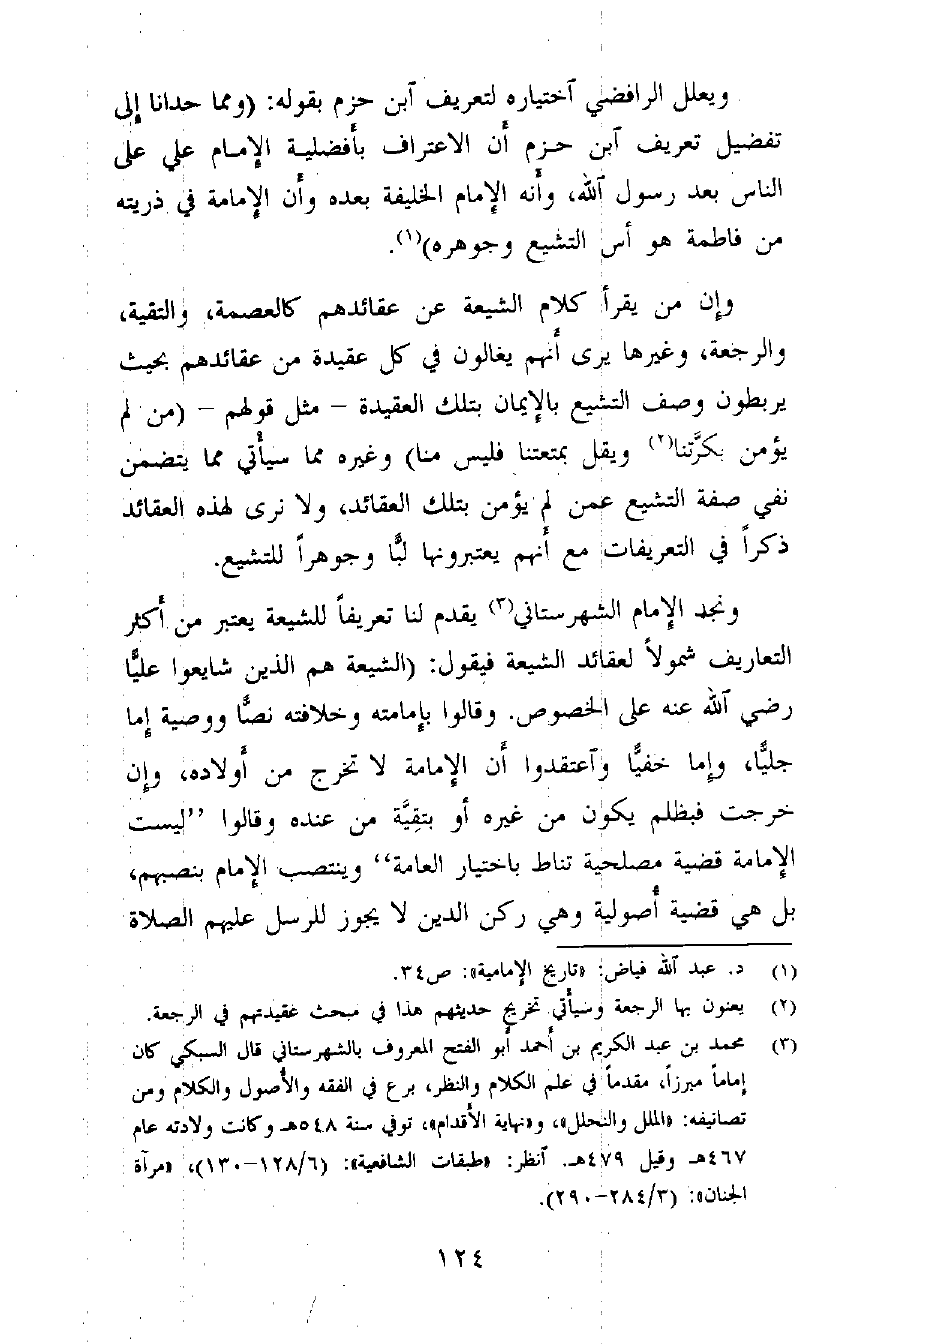 ويعلل الرافضي آختياره لتعريف آبن حزم بقوله: (ومما حدانا إلى
تفضيل تعريف آبن حزم أن الاعتراف بأفضلية الإمام علي على
الناس بعد رسول آلله، وأنه الإمام الخليفة بعده وأن الإمامة في ذريته
من فاطمة هو أس التشيع وجوهره)(١).
وإن من يقرأ كلام الشيعة عن عقائدهم كالعصمة، والتقية،
والرجعة، وغيرها يرى أنهم يغالون في كل عقيدة من عقائدهم بحيث
يربطون وصف التشيع بالإيمان بتلك العقيدة – مثل قولهم – (من لم
يؤمن بكرَّتنا(٢) ويقل بمتعتنا فليس منا) وغيره مما سيأتي مما يتضمن
نفي صفة التشيع عمن لم يؤمن بتلك العقائد، ولا نرى لهذه العقائد
ذكراً في التعريفات مع أنهم يعتبرونها لبًّا وجوهراً للتشيع.
ونجد الإمام الشهرستاني(٣) يقدم لنا تعريفاً للشيعة يعتبر من أكثر
التعاريف شمولاً لعقائد الشيعة فيقول: (الشيعة هم الذين شايعوا عليًّا
رضي آلله عنه على الخصوص. وقالوا بإمامته وخلافته نصًّا ووصية إما
جليًّا، وإما خفيًّا وآعتقدوا أن الإمامة لا تخرج من أولاده، وإن
خرجت فبظلم يكون من غيره أو بتقيَّة من عنده وقالوا ’’ليست
الإمامة قضية مصلحية تناط باختيار العامة‘‘ وينتصب الإمام بنصبهم،
بل هي قضية أصولية وهي ركن الدين لا يجوز للرسل عليهم الصلاة
(١) د. عبد آلله فياض: «تاريخ الإمامية»: ص٣٤.
(٢) يعنون بها الرجعة وسيأتي تخريج حديثهم هذا في مبحث عقيدتهم في الرجعة.
(٣) محمد بن عبد الكريم بن أحمد أبو الفتح المعروف بالشهرستاني قال السبكي كان
إماماً مبرزاً، مقدماً في علم الكلام والنظر، برع في الفقه والأصول والكلام ومن
تصانيفه: «الملل والنحلل»، و«نهاية الأقدام»، توفي سنة ٥٤٨هـ وكانت ولادته عام
٤٦٧هـ وقيل ٤٧٩هـ. آنظر: «طبقات الشافعية»: (١٢٨/٦–١٣٠)، «مرآة
الجنان»: (٢٨٤/٣–٢٩٠).
١٢٤